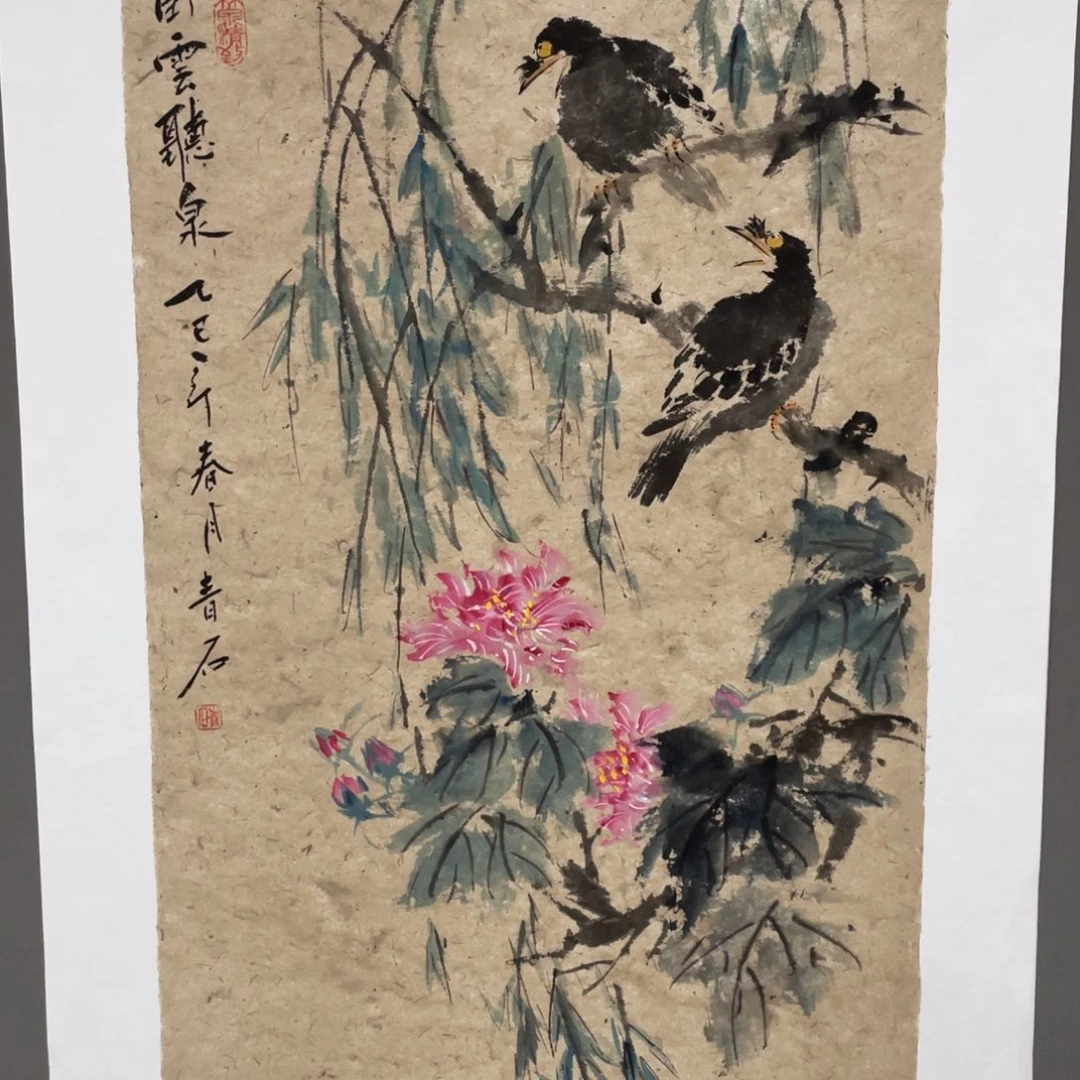 雲聽泉乙巳年春月青石